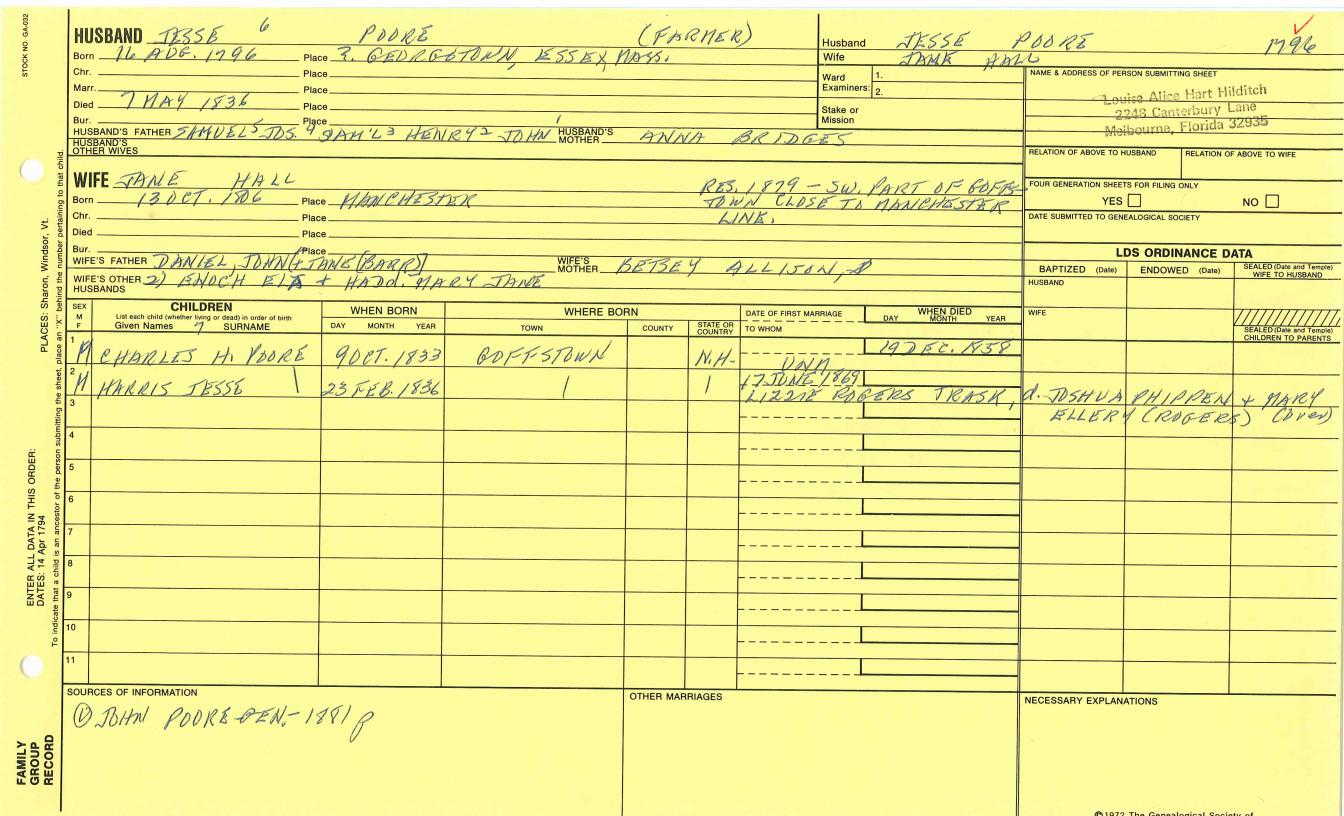 STOCK NO. GA-032
HUSBAND JESSE 6 POORE (FARMER)
Born 16 AUG. 1796 Place ?. GEORGETOWN, ESSEX, MASS.
Chr. Place
Marr. Place
Died 7 MAY 1836 Place
Bur. Place
HUSBAND'S FATHER SAMUEL 5 JOS. 4 SAM'L 3 HENRY 2 JOHN 1 HUSBAND'S MOTHER ANNA BRIDGES
HUSBAND'S OTHER WIVES
Husband JESSE POORE 1796
Wife JANE HALL
Ward Examiners: 1.
2.
Stake or Mission
NAME & ADDRESS OF PERSON SUBMITTING SHEET
Louise Alice Hart Hilditch
2248 Canterbury Lane
Melbourne, Florida 32935
RELATION OF ABOVE TO HUSBAND RELATION OF ABOVE TO WIFE
FOUR GENERATION SHEETS FOR FILING ONLY
YES NO
DATE SUBMITTED TO GENEALOGICAL SOCIETY
WIFE JANE HALL
RES. 1879 - SW. PART OF GOFFS-
TOWN CLOSE TO MANCHESTER
LINE.
Born 13 OCT. 1806 Place MANCHESTER
Chr. Place
Died Place
Bur. Place
WIFE'S FATHER DANIEL, JOHN (+ JANE (BARR)) WIFE'S MOTHER BETSEY ALLISON,
WIFE'S OTHER HUSBANDS 2) ENOCH + HADD. MARY JANE
LDS ORDINANCE DATA
BAPTIZED (Date) ENDOWED (Date) SEALED (Date and Temple) WIFE TO HUSBAND
HUSBAND
WIFE
SEALED (Date and Temple) CHILDREN TO PARENTS
SEX M F
CHILDREN
List each child (whether living or dead) in order of birth
Given Names 7 SURNAME
WHEN BORN
DAY MONTH YEAR
WHERE BORN
TOWN COUNTY STATE OR COUNTRY
DATE OF FIRST MARRIAGE
TO WHOM
WHEN DIED
DAY MONTH YEAR
1 M CHARLES H. POORE 9 OCT. 1833 GOFFSTOWN N.H. UNM 19 DEC. 1858
2 M HARRIS JESSE \ 23 FEB. 1836 | | 17 JUNE 1869
LIZZIE ROGERS TRASK, d. JOSHUA PHIPPEN + MARY
ELLERY (ROGERS) (over)
3
4
5
6
7
8
9
10
11
SOURCES OF INFORMATION
① JOHN POORE GEN. - 1881 p
OTHER MARRIAGES
NECESSARY EXPLANATIONS
©1972 The Genealogical Society of
PLACES: Sharon, Windsor, Vt.
ENTER ALL DATA IN THIS ORDER:
DATES: 14 Apr 1794
To indicate that a child is an ancestor of the person submitting the sheet, place an "X" behind the number pertaining to that child.
FAMILY
GROUP
RECORD